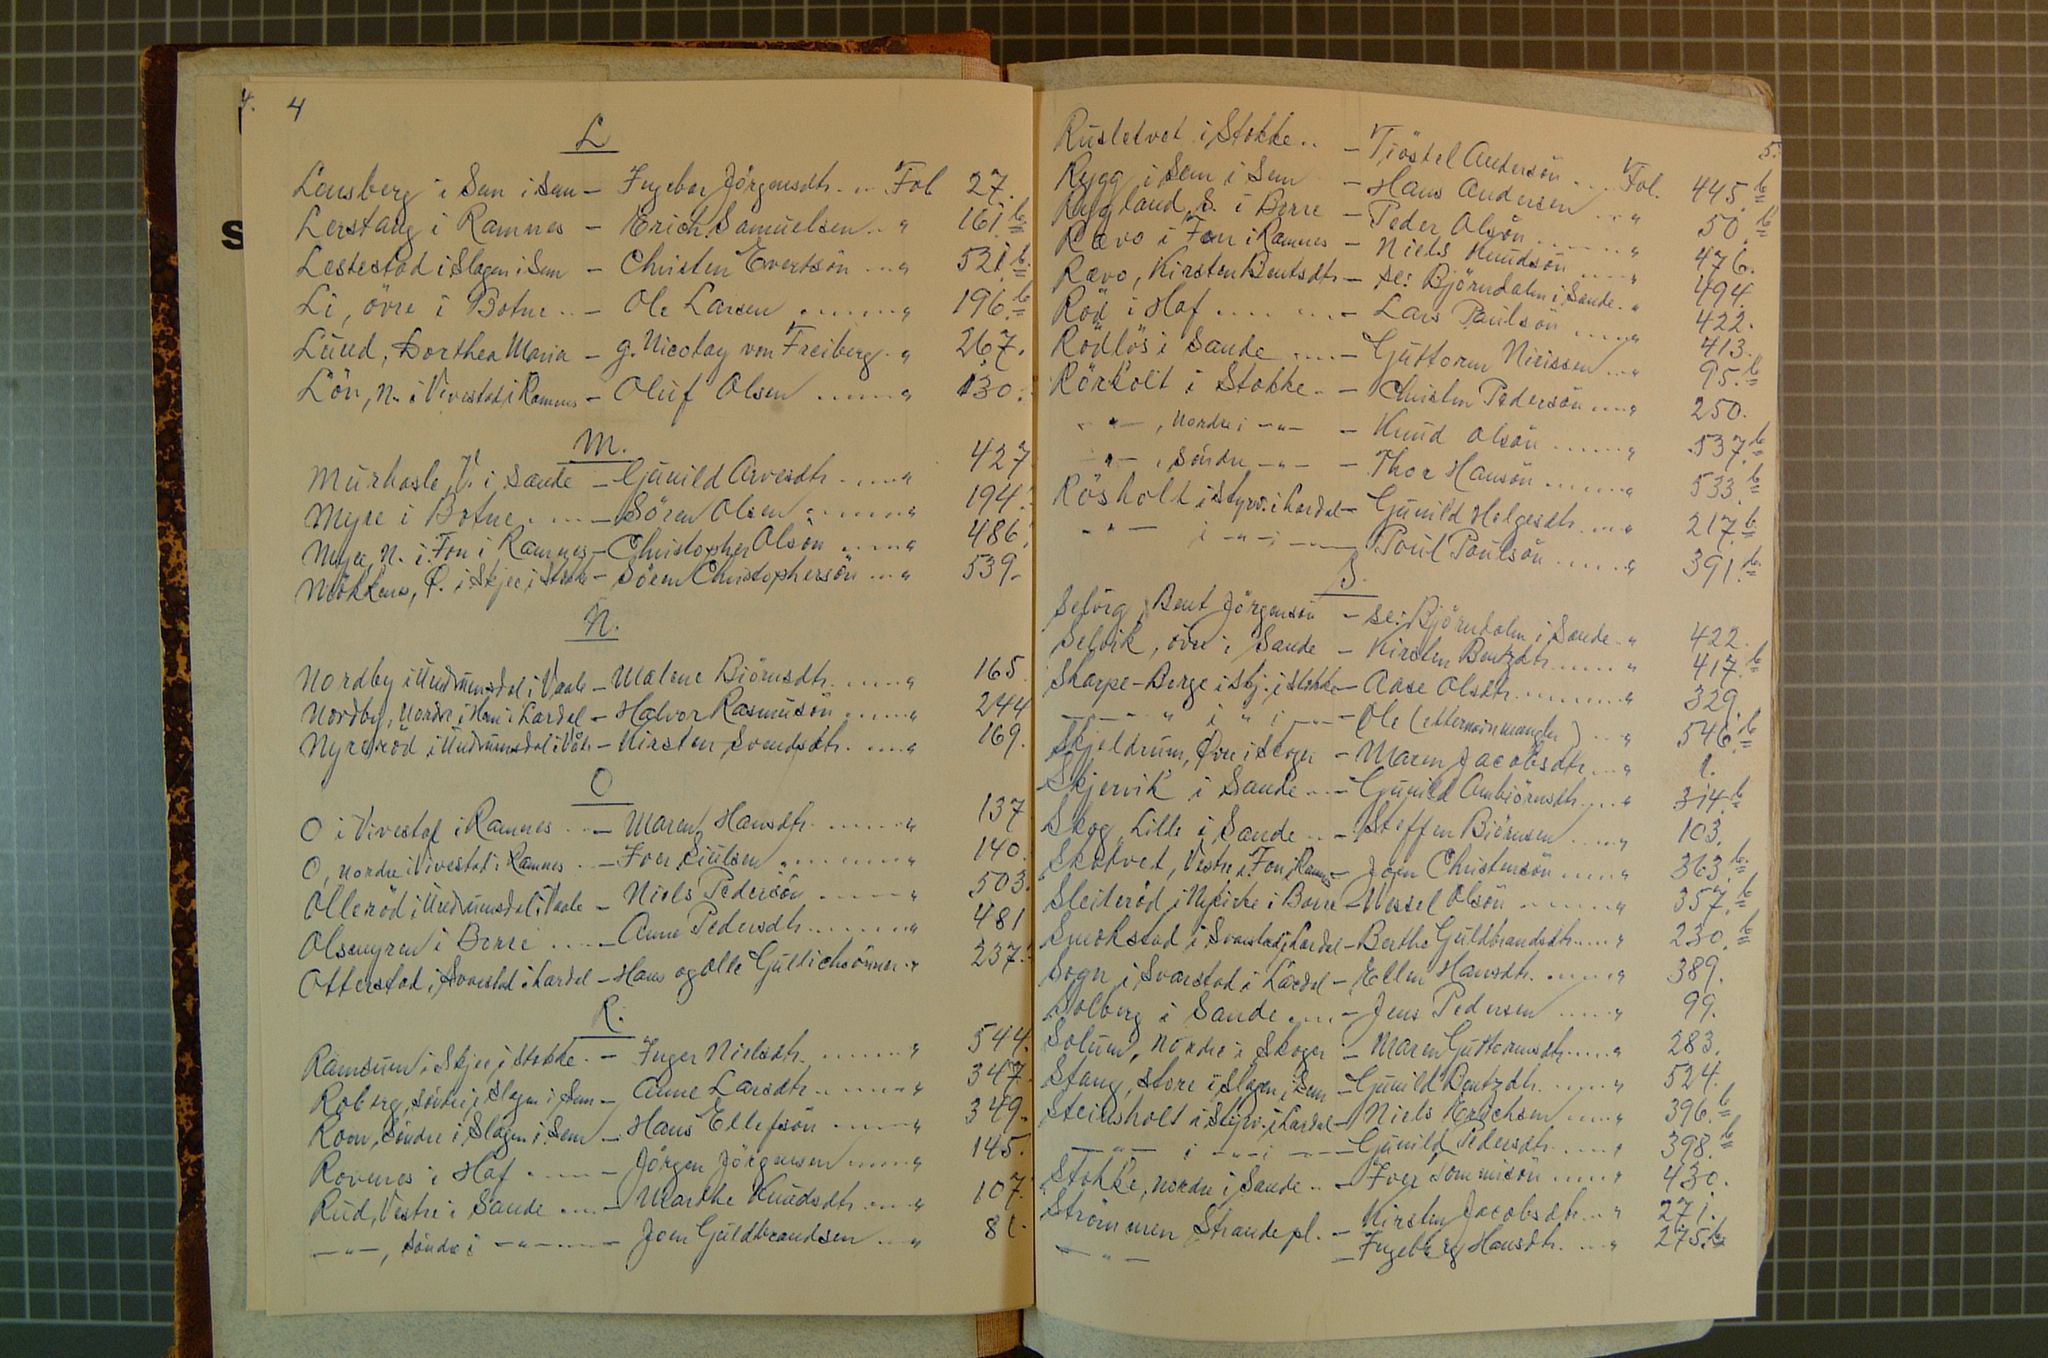 4. 4
L
Lensberg i Sem i Sem - Ingebor Jörgensdtr. ... Fol 27.
Lerstang i Ramnes - Erich Samuelsen .. " 161 b
Lestestad i Slagen i Sem - Christen Evertsön ... " 521 b
Li, övre i Botne .. - Ole Larsen ...... " 196 b
Lund, Dorthea Maria - g. Nicolay von Freiberg . " 267.
Lön, N. i Vivestad i Ramnes - Oluf Olsen ..... " 130.
M.
Murhasle, V. i Sande - Gunild Arvesdtr. .... " 427
Myre i Botne .... - Sören Olsen ...... " 194.
Myre, N. i Fon i Ramnes - Christopher Olsön .... " 486.
Möklens, Ö. i Skjee i Stokke - Sören Christophersön ... " 539.
N.
Nordby i Undrumsdal i Vaale - Malene Biörnsdtr. .... " 165.
Nordby, Nordre i Hem i Lardal - Halvor Rasmusön .... " 244
Nyreröd i Undrumsdal i Våle - Kirsten Svendsdtr. ... " 169.
O
O i Vivestad i Ramnes ... - Maren Hansdtr. ..... " 137
O, nordre i Vivestad i Ramnes ... - Iver Siulsen ...... " 140.
Olleröd i Undrumsdal i Vaale - Niels Pedersön ..... " 503.
Olsmyren i Borre .... - Anne Pedersdtr. ..... " 481
Otterstad i Svarstad i Lardal - Hans og Olle Gullichsönner . " 237.
R.
Ramsum i Skjee i Stokke .. - Inger Nielsdtr. ...... " 544.
Roberg, söndre i Slagen i Sem - Anne Larsdtr. ..... " 347.
Rom, Söndre i Slagen i Sem - Hans Ellefsön .... " 349.
Rovenes i Hof ..... - Jörgen Jörgensen .... " 145.
Rud, Vestre i Sande .... - Marthe Knudsdtr. ... " 107.
—"—, söndre i —"— - Joen Guldbrandsen ... " 81.
5.
Rusletvet i Stokke .. - Tjöstel Andersön .... Fol. 445 b
Rygg i Sem i Sem - Hans Andersen ... " 50 b
Ryggland, S. i Borre - Peder Olsön ..... " 476.
Rævo i Fon i Ramnes - Niels Knudsön .... " 494.
Rævo, Kirsten Bentsdtr. - se: Björndalen i Sande . " 422.
Röd i Hof .... ... - Lars Paulsön .... " 413.
Rödlös i Sande .... - Guttorm Nirissen ... " 95 b
Rörkolt i Stokke .. - Christen Pedersön .... " 250.
—"—, Nordre i —"— - Knud Olsön ...... " 537 b
—"—, Söndre —"— - Thor Hansön ...... " 533 b
Rösholt i Styrv. i Lardal - Gunild Helgesdtr. ... " 217 b
—"— i —"— i —"— Poul Poulsön ..... " 391 b
S.
Selvig, Bent Jörgensön - se: Björndalen i Sande .. " 422.
Selvik, övre i Sande - Kirsten Bentzdtr. ..... " 417 b
Skarpe-Berge i Skj. i Stokke - Aase Olsdtr. ....... " 329.
—"— " i " i —"— - Ole (etternavn mangler) ... " 546 b
Skjeldrum, Övre i Skoger - Maren Jacobsdtr. ... " 1.
Skjervik i Sande .. - Gunild Anbiörnsdtr. .... " 314 b
Skog, Lille i Sande .. - Steffen Biörnsen .... " 103.
Skotvet, Vestre i Fon i Ramnes - Joen Christensön .... " 363 b
Sleiteröd i Nykirke i Borre - Wessel Olsön ...... " 357 b
Smokstad i Svarstad i Lardal - Berthe Guldbrandsdtr. .... " 230 b
Sogn i Svarstad i Lardal - Ellen Hansdtr. ..... " 389.
Solberg i Sande .... - Jens Pedersen ..... " 99.
Solum, nordre i Skoger - Maren Guttormsdtr. .... " 283.
Stang, store i Slagen i Sem - Gunild Bentzdtr. .... " 524.
Steinsholt i Styrv. i Lardal - Niels Erichsen .... " 396 b
—"— i —"— i —"— Gunild Pedersdtr. .... " 398 b
Stokke, nordre i Sande .. - Iver Tommisön ..... " 430.
Strömmen Strandepl. - Kirsten Jacobsdtr. .. " 271.
—"— - Ingeborg Hansdtr. ... " 275 b